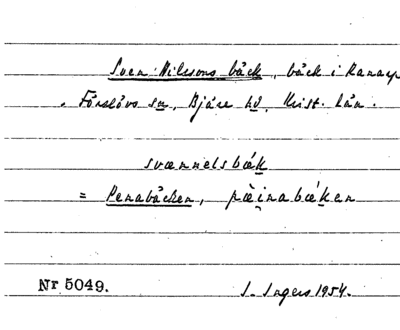 Sven Nilssons bäck, bäck i Ranarp
, Förslövs sn, Bjäre hd, Krist. län.
svænnelsbæk
= Penabäcken, pæinabæken
Nr 5049. I. Ingers 1954.